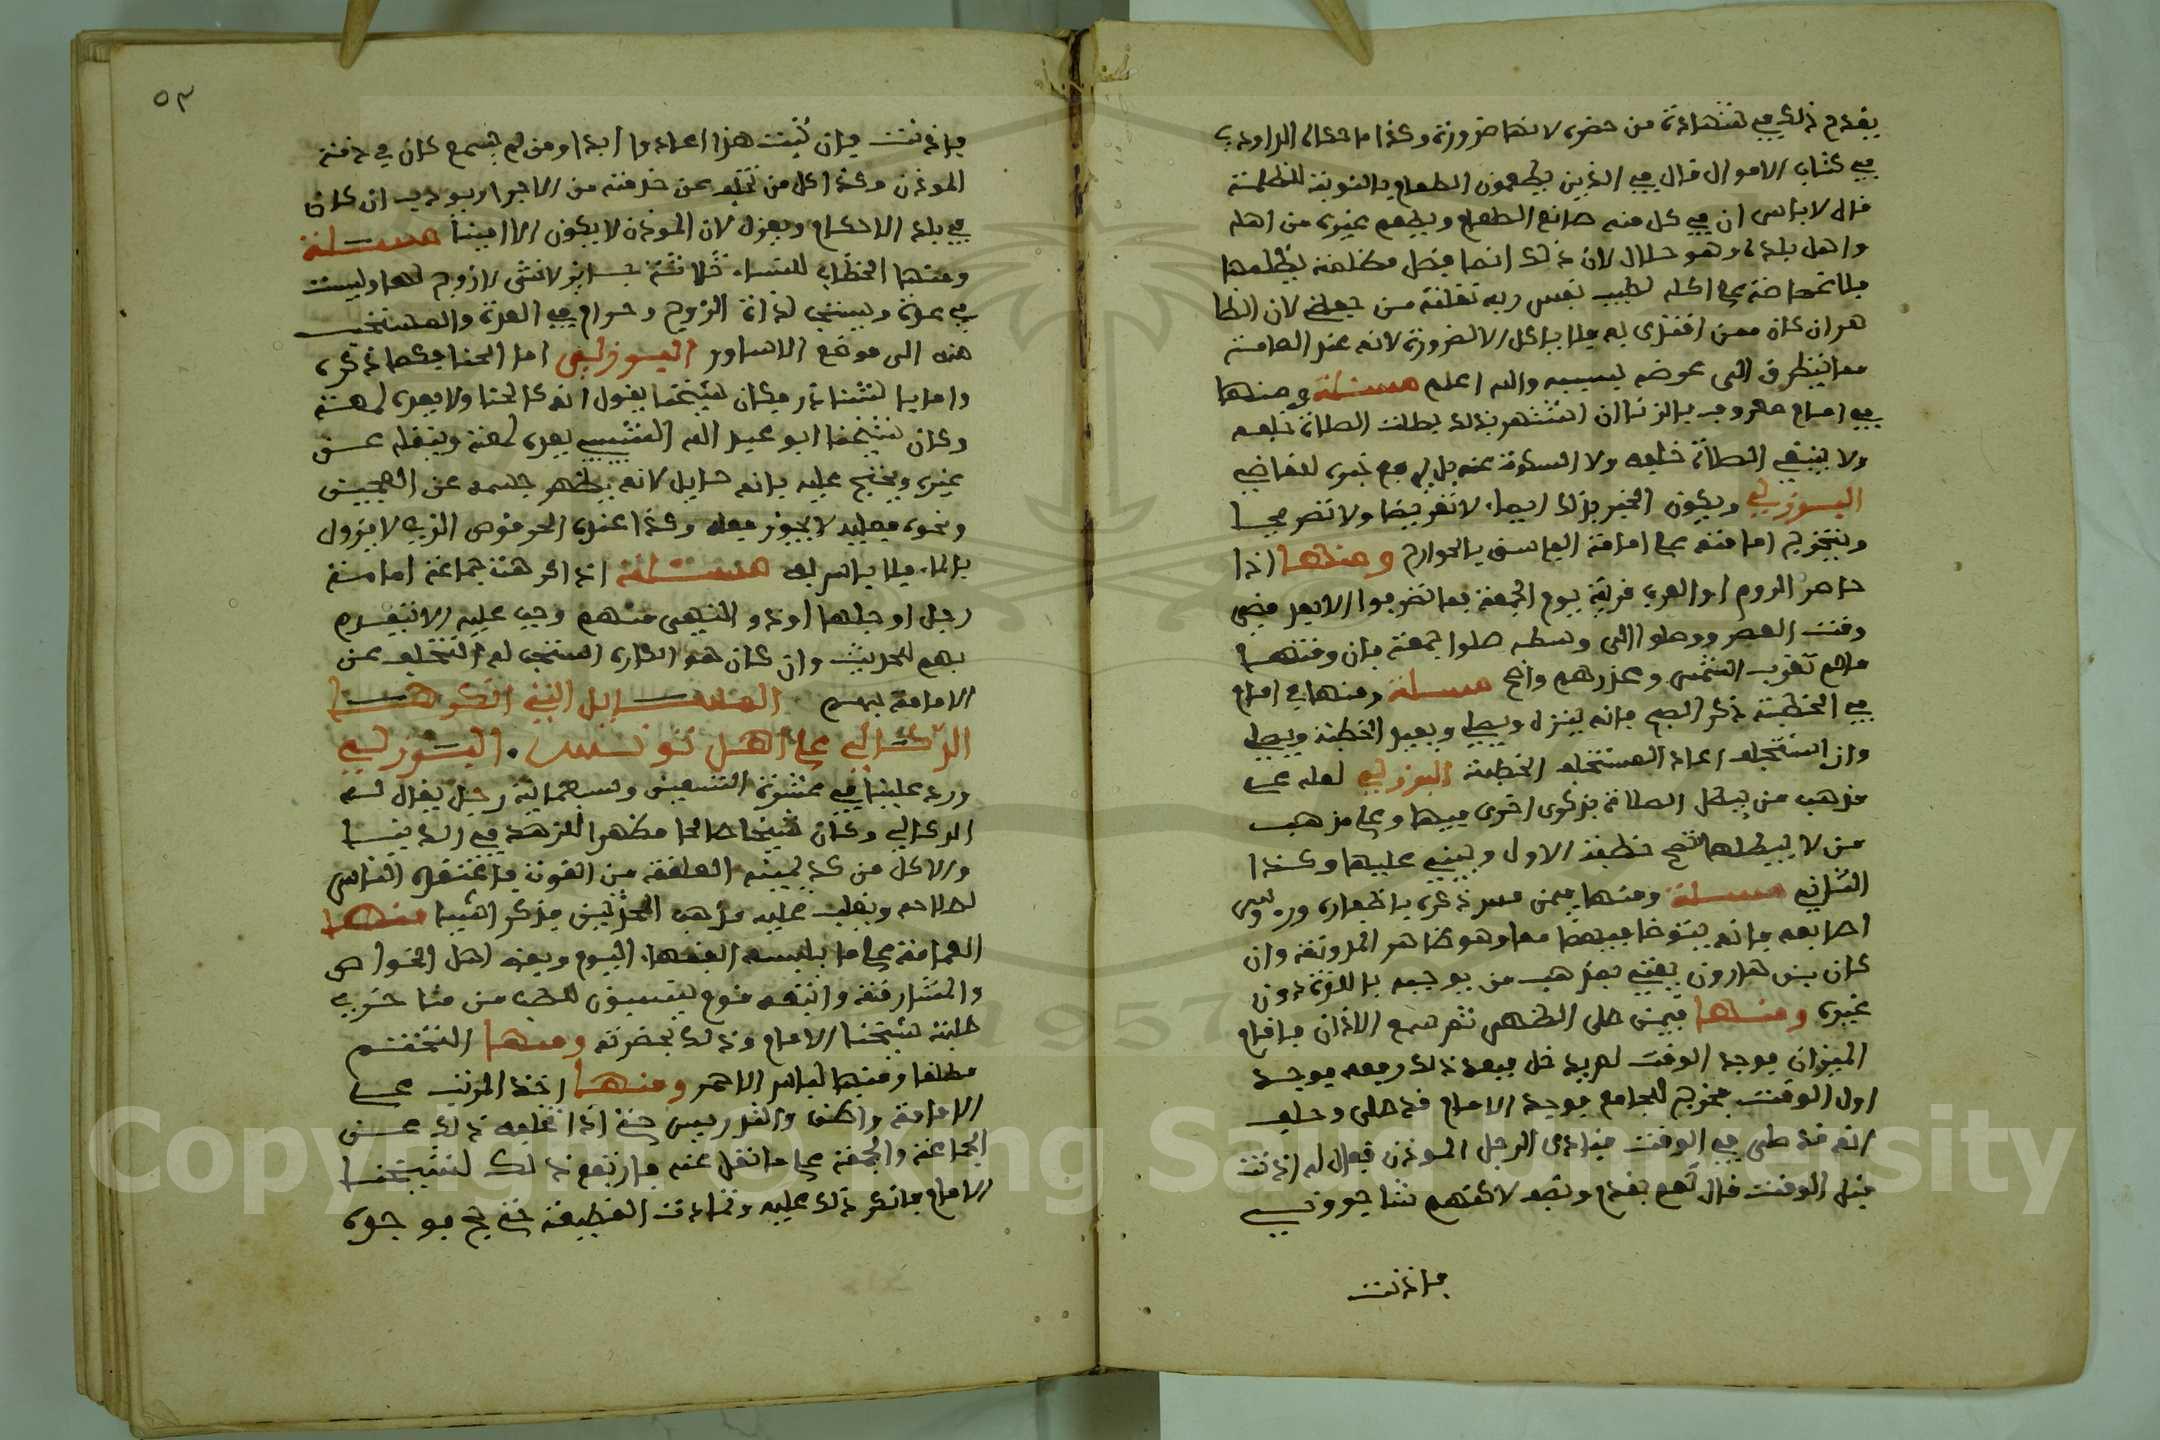 يقدح ذلك في شهادة من حضره لانها ضرورة وكذا ما حكاه الداودي
في كتاب الاموال قال في الذين يطعمون الطعام بالنوبة للظلمة
قال لا باس ان ياكل منه صانع الطعام ويطعم غيره من اهله
واهل بلده وهو حلال لان ذلك انما
هر ان كان ممن افتدى به فلا ياكل الا لضرورة لانه عند العامة
مما يتطرق الى عرضه بسببه والله اعلم مسئلة ومنها
في امام معروف بالزنا ان اشتهر بذلك بطلت الصلاة خلفه
ولا ينبغي الصلاة خلفه ولا السكوت عنه بل يرفع خبره للقاضي
البرزلي ويكون الخبر بذلك ايماء لا تعريضا ولا تصريحا
ويتخرج امامته على امامة الفاسق بالجوارح ومنها اذا
حاصر الروم او العرب قرية يوم الجمعة فما انصرفوا الا بعد مضي
وقت العصر ودخلوا الى وسطه صلوا جمعة فان وقتها
ما لم تغرب الشمس وعذرهم واضح مسئلة ومنها في امام
في الخطبة ذكر الصبح فانه ينزل ويصلي ويعيد الخطبة ويصلي
وان استخلف اعاد المستخلف الخطبة البرزلي لعله على
مذهب من يبطل الصلاة بذكرى اخرى فيها وعلى مذهب
من لا يبطلها تصح خطبة الاول ويبني عليها وكذا
الثاني مسئلة ومنها فيمن مس ذكره باظفاره ورءوس
اصابعه فانه يتوضا فيهما معا وهو ظاهر المدونة وان
كان بن هارون يفتي بمذهب من يوجبه باللذة دون
غيره ومنها فيمن صلى الظهر ثم سمع الاذان فاقام
الميزان فوجد الوقت لم يدخل فبعد ذلك رفعه فوجد
اول الوقت فخرج للجامع فوجد الامام قد صلى وحلف
انه قد صلى في الوقت فنادى الرجل المؤذن فقال له اذنت
قبل الوقت قال نعم بقدح ونصف لاكنهم
فاذنت
٥٣
فاذنت فان ثبت هذا اعادوا ابدا ومن لم يسمع كان في ذمة
المؤذن وكذا كل من تخلف عن خدمته من الاجراء يودب ان كان
في بلد الاحكام ويعزل لان المؤذن لا يكون الا امينا مسئلة
ومنها الخضاب للنساء ثلاثة جايز لانثى لا زوج لها وليست
في عدة ويستحب لذات الزوج وحرام في العدة والمستحب
منه الى موضع الاساور البرزلي اما الحنا فكما ذكره
واما بالنشادر فكان شيخنا يقول انه كالحنا ولا يعده لمعة
وكان شيخنا ابو عبد الله الشبيبي يعده لمعة وينقله عن
غيره ويحتج عليه بانه حايل لانه يظهر جسمه عن العجين
ونحوه فعليه لا يجوز فعله وكذا عنده الحرقوص الذي لا يزول
بالماء فلا باس به مسئلة اذا كرهت جماعة امامة
رجل او جلها او ذو النهى منهم وجب عليه الا يتقدم
بهم للحديث وان كان هو الكاره استحب له التخلف عن
الامامة بهم المسايل التي انكرها
الدكالي على اهل تونس . البرزلي
ورد علينا في عشرة التسعين وسبعماية رجل يقال له
الدكالي وكان شيخا صالحا مظهرا للزهد في الدنيا
والاكل من كد يمينه العلقة من القوت فاعتقده الناس
لصلاحه ويغلب عليه مذهب المحدثين فذكر اشيا منها
العمامة على ما يلبسه الفقهاء اليوم وبعض اهل الخواص
والمشارقة واتبعه قوم ينتسبون للطلب من متاخري
طلبة شيخنا الامام وذلك بحضرته ومنها التختم
مطلقا ومنها لباس الاحمر ومنها اخذ المرتب على
الامامة واظن والتدريس حتى اذا تخلف ذلك عن
الجماعة والجمعة على ما نقل عنه فارتفع ذلك لشيخنا
الامام فانكر ذلك عليه وتمادت القطيعة حتى حج فوجه